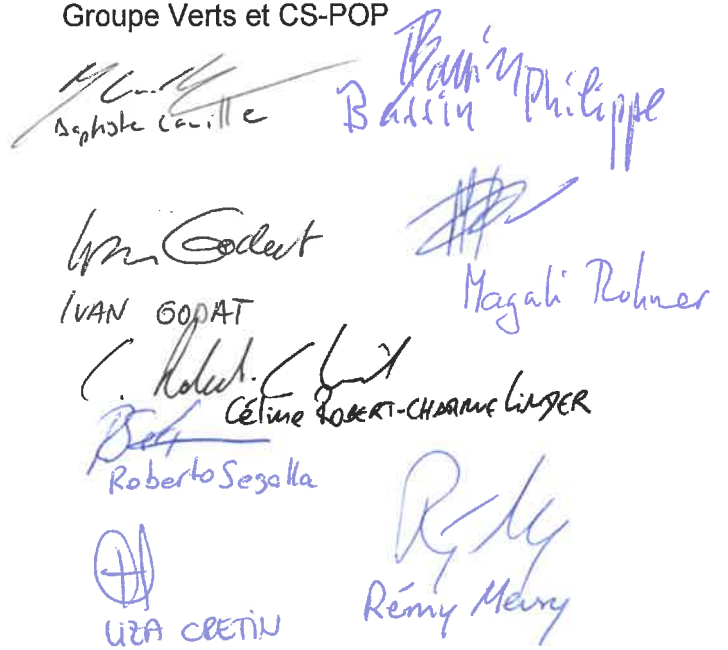 Groupe Verts et CS-POP
Baptiste Laville
Bassin Philippe
IVAN GODAT
Magali Rohner
Céline ROBERT-CHARRUE LINDER
Roberto Segalla
LIZA CRETIN
Rémy Meury